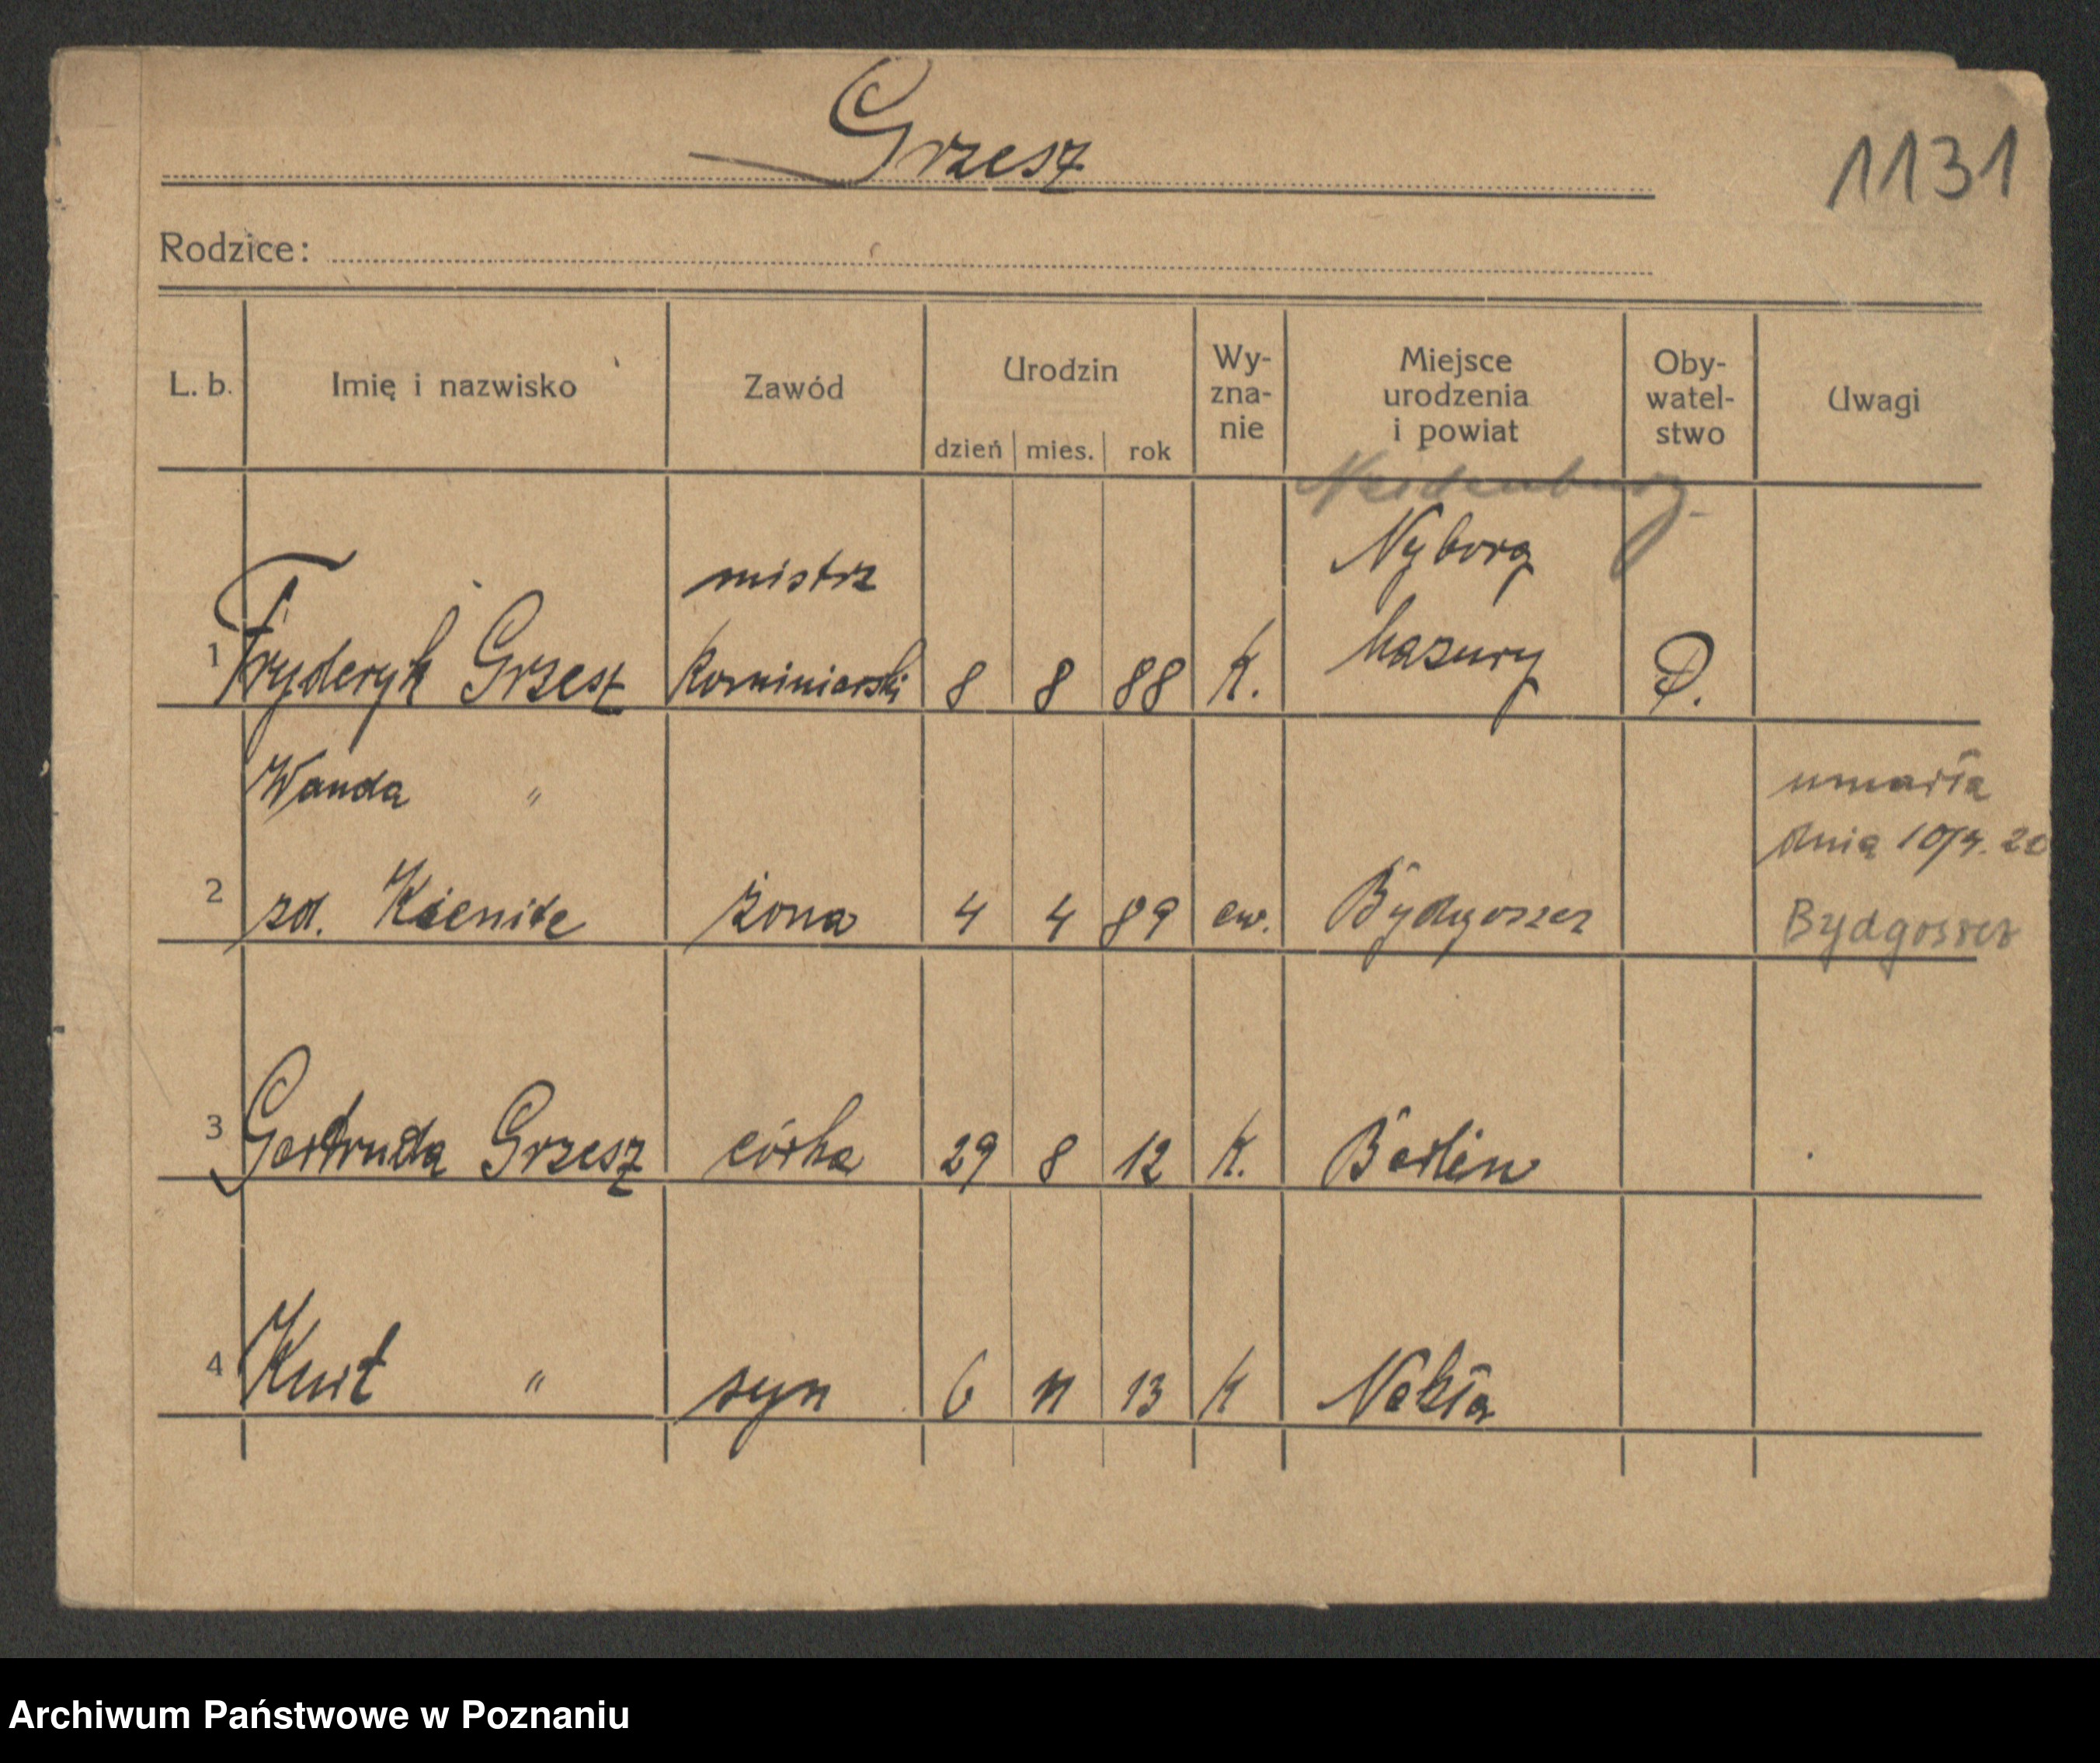 Grzesz
1131
Rodzice:
L. b. Imię i nazwisko Zawód Urodzin dzień mies. rok Wy-zna-nie Miejsce urodzenia i powiat Oby-watel-stwo Uwagi
Neidenburg.
mistrz Nyborg
1 Fryderyk Grzesz Kominiarski 8 8 88 K. Mazury P.
Wanda " umarła
dnia 10/4. 20
2 zd. żona 4 4 89 ew. Bydgoszcz Bydgoszcz
3 Gertruda Grzesz córka 29 8 12 K. Berlin
4 Kurt " syn 6 11 13 K Nakła
Archiwum Państwowe w Poznaniu